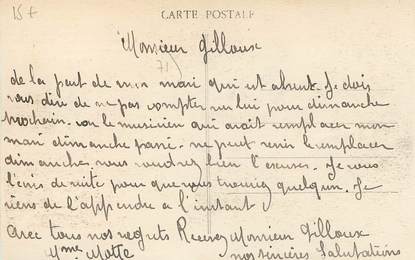 15 €
CARTE POSTALE
Monsieur Gilloux
71
de la part de mon mari qui est absent. Je dois
vous dire de ne pas compter sur lui pour dimanche
prochain. car le musicien qui avait remplacer mon
mari dimanche passé. ne peut venir le remplacer
dimanche. vous voudrez bien l'excuser. Je vous
l'écris de suite pour que vous trouviez quelqu'un. Je
viens de l'apprendre a l'instant
avec tous nos regrets Recevez Monsieur Gilloux
Mme Motte nos sincères Salutations